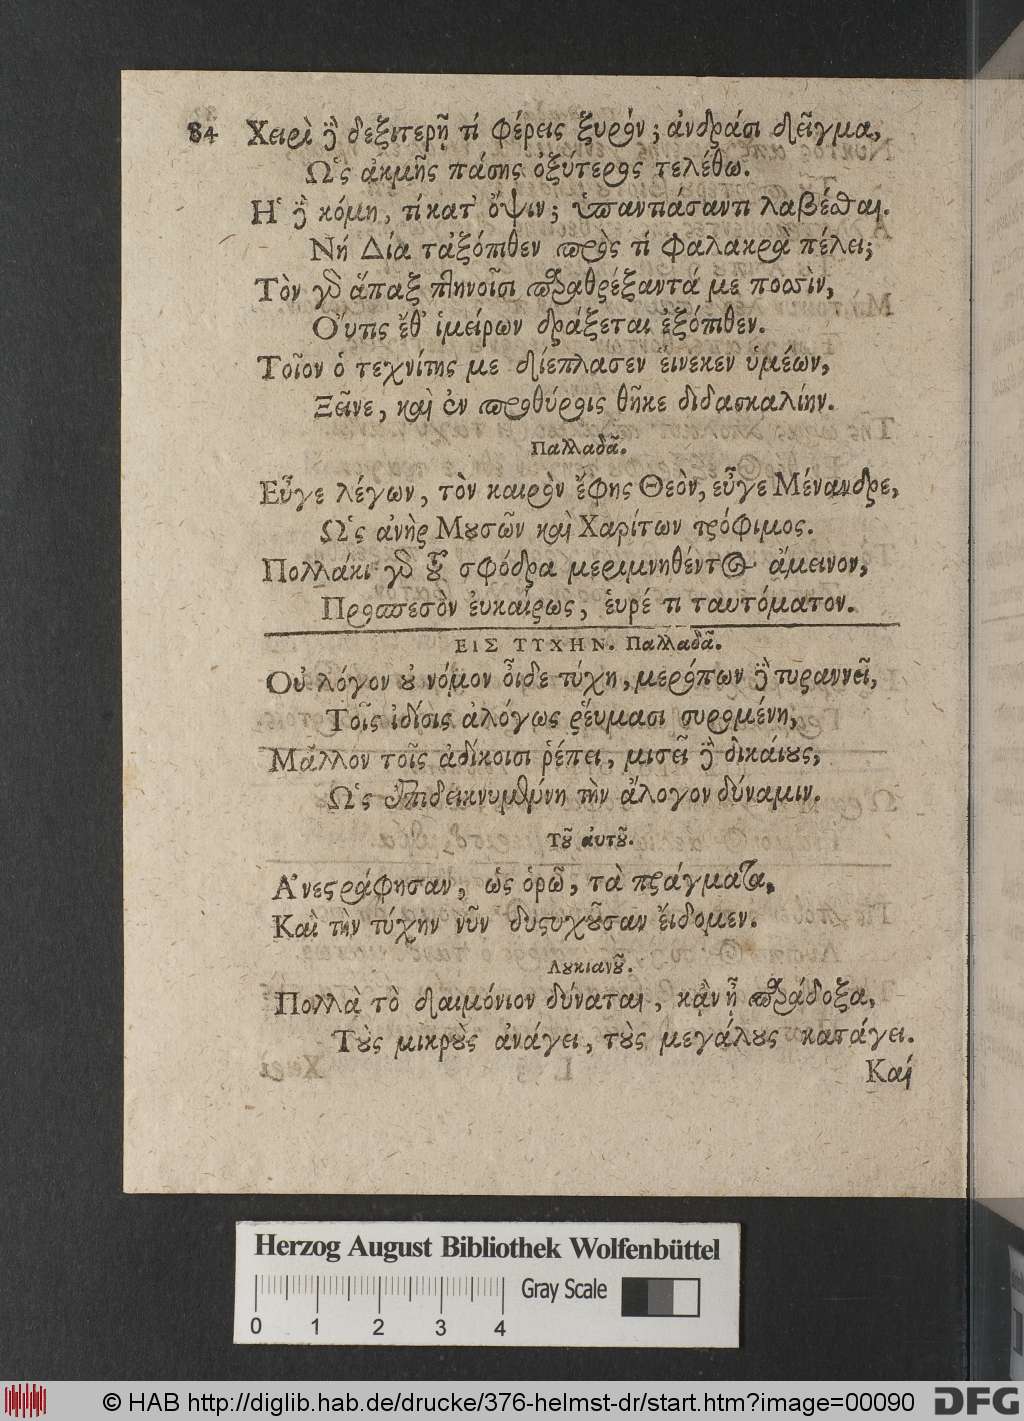 84 Χειρὶ δὲ δεξιτερῇ τί φέρεις ξυρόν; ἀνδράσι δεῖγμα,
Ω῾ς ἀκμῆς πάσης ὀξύτερος τελέθω.
Η῾ δὲ κόμη, τί κατ' ὄψιν; ὑπαντιάσαντι λαβέσθαι.
Νή Δία τἀξόπιθεν πρὸς τί φαλακρὰ πέλει;
Τὸν γὰρ ἅπαξ πτηνοῖσι παραθρέξαντά με ποσσὶν,
Ο῎υτις ἔθ' ἱμείρων δράξεται ἐξόπιθεν.
Τοῖον ὁ τεχνίτης με διέπλασεν ἕινεκεν ὑμέων,
Ξεῖνε, καὶ ἐν προθύροις θῆκε διδασκαλίην.
Παλλαδᾶ.
Εὖγε λέγων, τὸν καιρὸν ἔφης Θεὸν, εὖγε Μένανδρε,
Ω῾ς ἀνὴρ Μουσῶν καὶ Χαρίτων τρόφιμος.
Πολλάκι γὰρ τοῦ σφόδρα μεριμνηθέντος ἄμεινον,
Προσπεσὸν ἐυκαίρως, ἑυρέ τι ταυτόματον.
ΕΙΣ ΤΥΧΗΝ. Παλλαδᾶ.
Οὐ λόγον οὐ νόμον οἶδε τύχη, μερόπων δὲ τυραννεῖ,
Τοῖς ἰδίοις ἀλόγως ῥεύμασι συρομένη,
Μᾶλλον τοῖς ἀδίκοισι ῥέπει, μισεῖ δὲ δικάιους,
Ω῾ς ἐπιδεικνυμένη τὴν ἄλογον δύναμιν.
Τοῦ ἀυτοῦ.
Α᾿νεστράφησαν, ὡς ὁρῶ, τὰ πράγματα,
Καὶ τὴν τύχην νῦν δυστυχοῦσαν ἔιδομεν.
Λουκιανοῦ.
Πολλὰ τὸ δαιμόνιον δύναται, κἂν ᾖ παράδοξα,
Τοὺς μικροὺς ἀνάγει, τοὺς μεγάλους κατάγει.
Καί
Herzog August Bibliothek Wolfenbüttel
0 1 2 3 4 Gray Scale
© HAB http://diglib.hab.de/drucke/376-helmst-dr/start.htm?image=00090 DFG